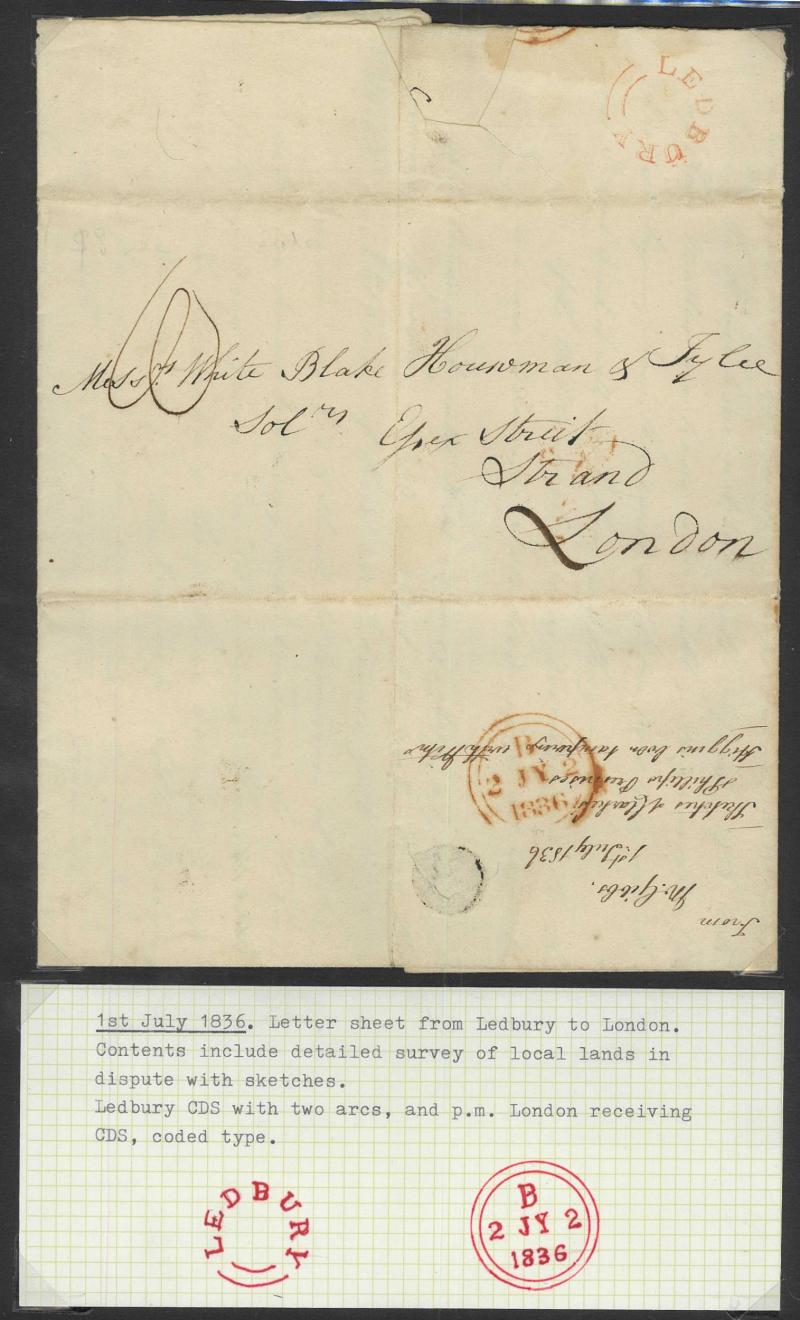 LEDBURY
Mess.rs White Blake Houseman & Tylee
Sol.rs Essex Street
Strand
London
B
2 JY 2
1836
From
Mr. Gibbs.
1st July 1836
Sketches of Clarke's
& Phillips Premises
Higgins
1st July 1836. Letter sheet from Ledbury to London.
Contents include detailed survey of local lands in
dispute with sketches.
Ledbury CDS with two arcs, and p.m. London receiving
CDS, coded type.
LEDBURY
B
2 JY 2
1836